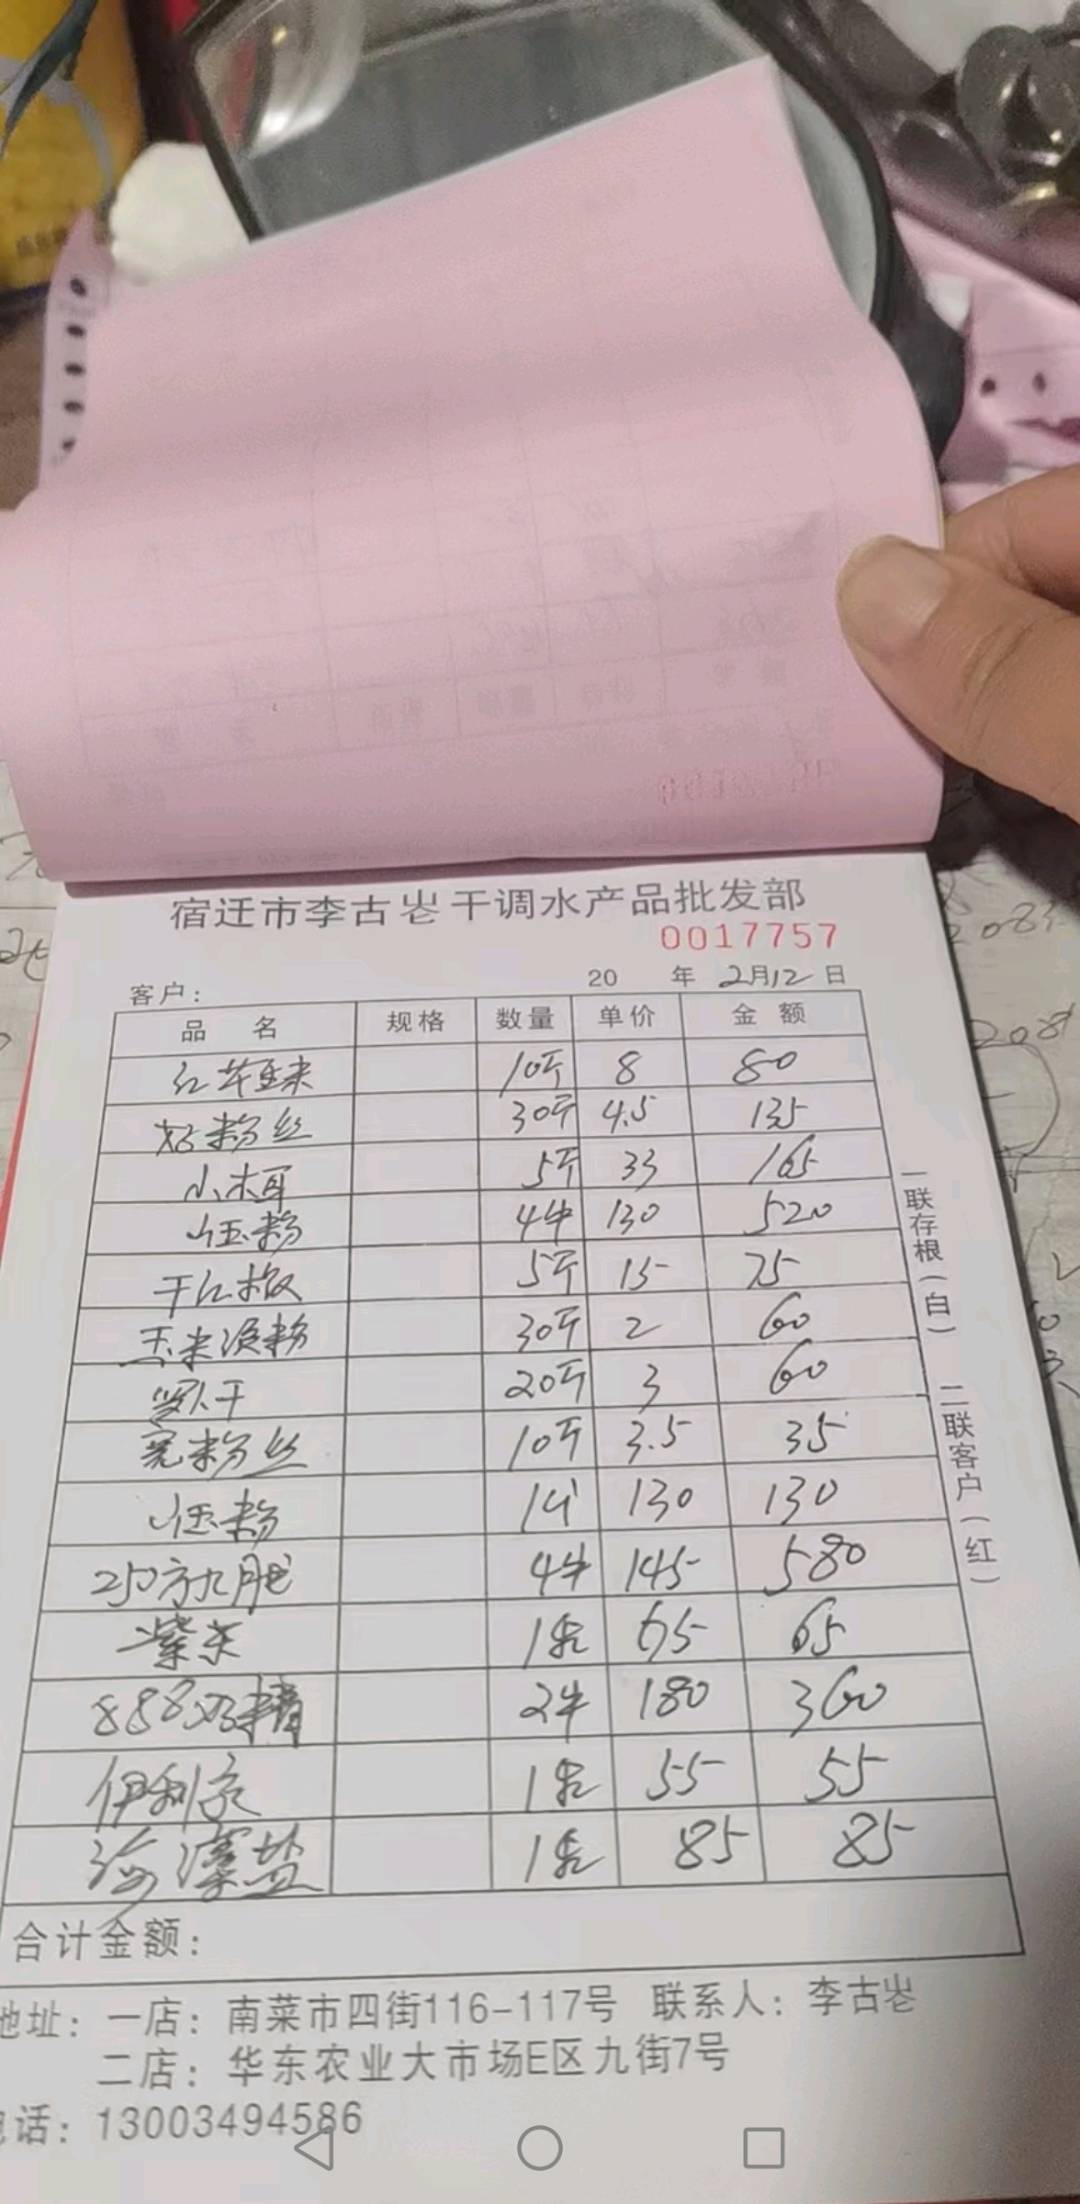 宿迁市李古岜干调水产品批发部
0017757
客户： 20 年 2月12日
品 名 规格 数量 单价 金 额
10斤 8 80
好粉丝 30斤 4.5 135
小木耳 5斤 33 165
4件 130 520
干红椒 5斤 15 75
玉米渣粉 30斤 2 60
萝卜干 20斤 3 60
宽粉丝 10斤 3.5 35
1件 130 130
4件 145 580
紫菜 1袋 65 65
888鸡精 2件 180 360
伊利 1袋 55 55
海藻盐 1袋 85 85
合计金额：
一联存根（白） 二联客户（红）
地址：一店：南菜市四街116-117号 联系人：李古岜
二店：华东农业大市场E区九街7号
电话：13003494586